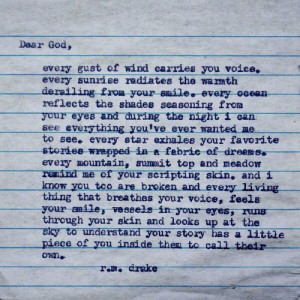 Dear God,
every gust of wind carries you voice.
every sunrise radiates the warmth
derailing from your smile. every ocean
reflects the shades seasoning from
your eyes and during the night i can
see everything you've ever wanted me
to see. every star exhales your favorite
stories wrapped in a fabric of dreams.
every mountain, summit top and meadow
remind me of your scripting skin. and i
know you too are broken and every living
thing that breathes your voice, feels
your smile, vessels in your eyes, runs
through your skin and looks up at the
sky to understand your story has a little
piece of you inside them to call their
own.
r.m. drake